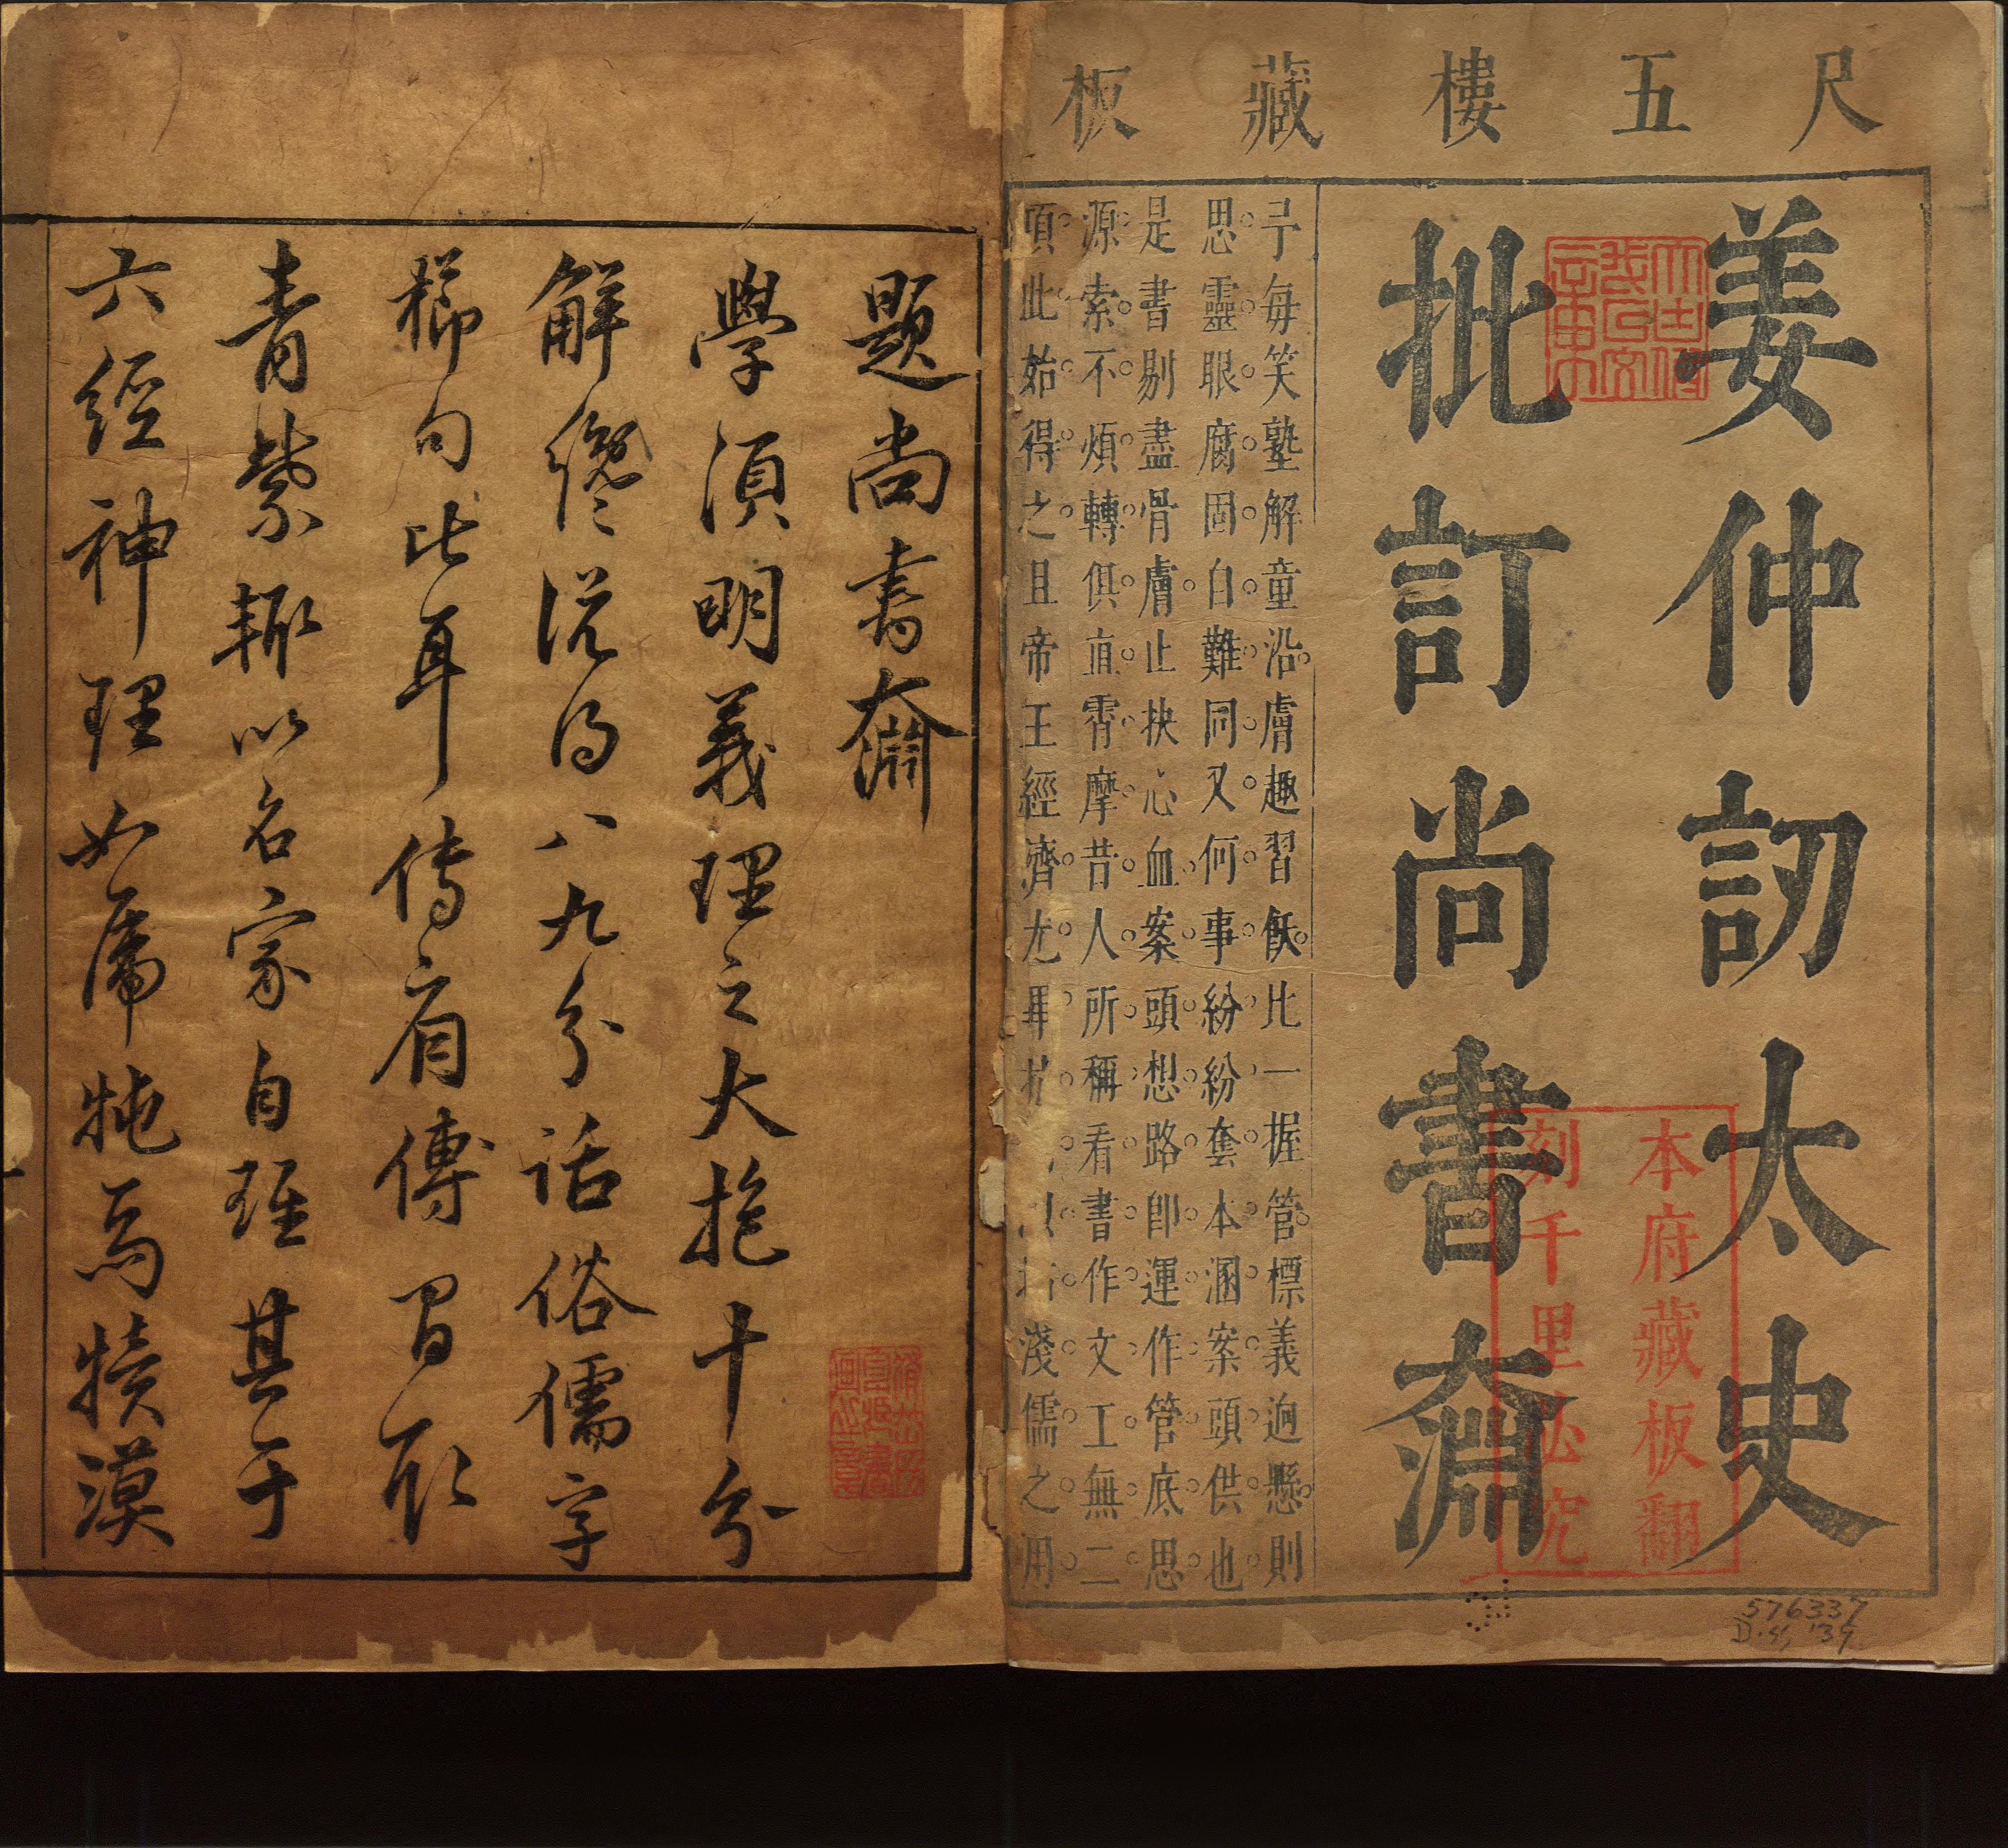 尺五樓藏板
姜仲訒太史
批訂尚書奫
予每笑塾解童沿膚趣習飫比一握管標義逈懸則
思靈眼腐固白難同又何事紛紛套本溷案頭供也
是書剔盡骨膚止抉心血案頭想路卽運作管底思
源索不煩轉俱直霄摩昔人所稱看書作文工無二
項此始得之且帝王經濟尤
淺儒之用
本府藏板翻
刻千里必究
576337
題尚書奫
學須明義理之大抵十分
解纔說得八九分話俗儒字
櫛句比耳傳肩傳冒取
青紫輙以名家自雄其于
六經神理如虎牠焉犢漠